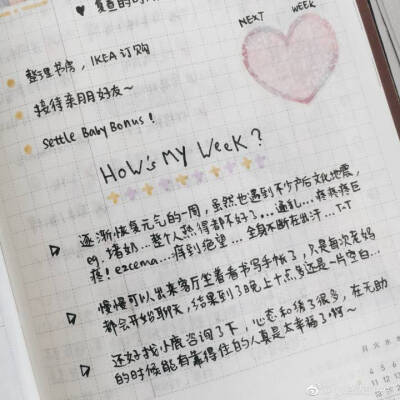 ♥ 复查的时
NEXT WEEK
整理书房，IKEA订购
接待亲朋好友～
Settle Baby Bonus!
HOW's MY WEEK?
逐渐恢复元气的一周，虽然也遇到不少产后文化地震，
eg. 堵奶...整个人热得都不好了...通乳...疼疼疼巨
疼！eczema...得到绝望...全身不断在出汗...T-T
慢慢可以出来客厅坐着看书写手帐了，只是每次老妈
都会开始聊天，结果到了晚上十点多还是一片空白...
还好找小鹿咨询了下，心态和缓了很多，在无助
的时候能有靠得住的人真是太幸福了啊～